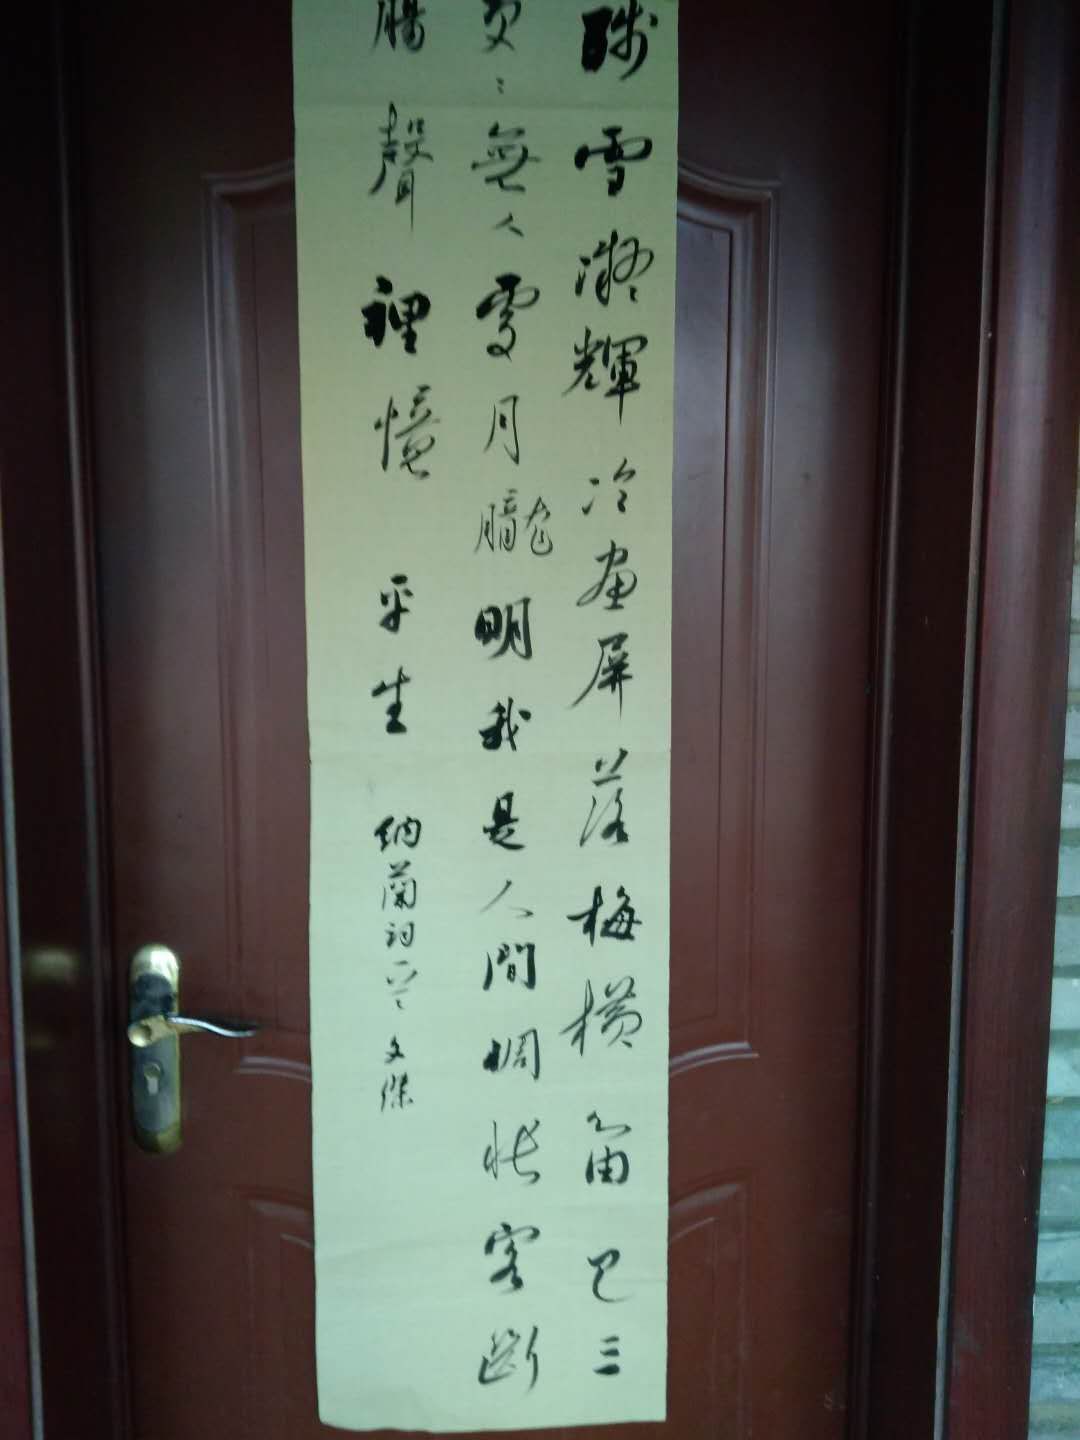 殘雪凝輝冷畫屏落梅橫笛已三
更〻無人處月朧明我是人間惆悵客斷
腸聲裡憶平生 納蘭詞一首 文傑